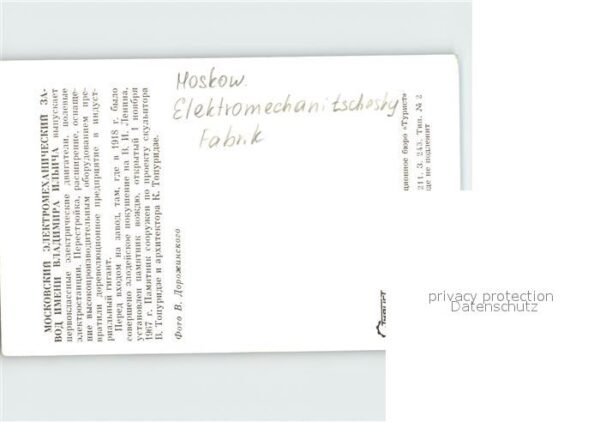 МОСКОВСКИЙ ЭЛЕКТРОМЕХАНИЧЕСКИЙ ЗА-
ВОД ИМЕНИ ВЛАДИМИРА ИЛЬИЧА выпускает
первоклассные электрические двигатели, полевые
электростанции. Перестройка, расширение, оснаще-
ние высокопроизводительным оборудованием пре-
вратили дореволюционное предприятие в индуст-
риальный гигант.
Перед входом на завод, там, где в 1918 г. было
совершено злодейское покушение на В. И. Ленина,
установлен памятник вождю, открытый 1 ноября
1967 г. Памятник сооружен по проекту скульптора
В. Топуридзе и архитектора К. Топуридзе.
Фото В. Дорожинского
Moskow.
Elektromechanitschesky
Fabrik
ционное бюро «Турист»
211. З. 243. Тип. № 2
где не подлежит
Турист
privacy protection
Datenschutz